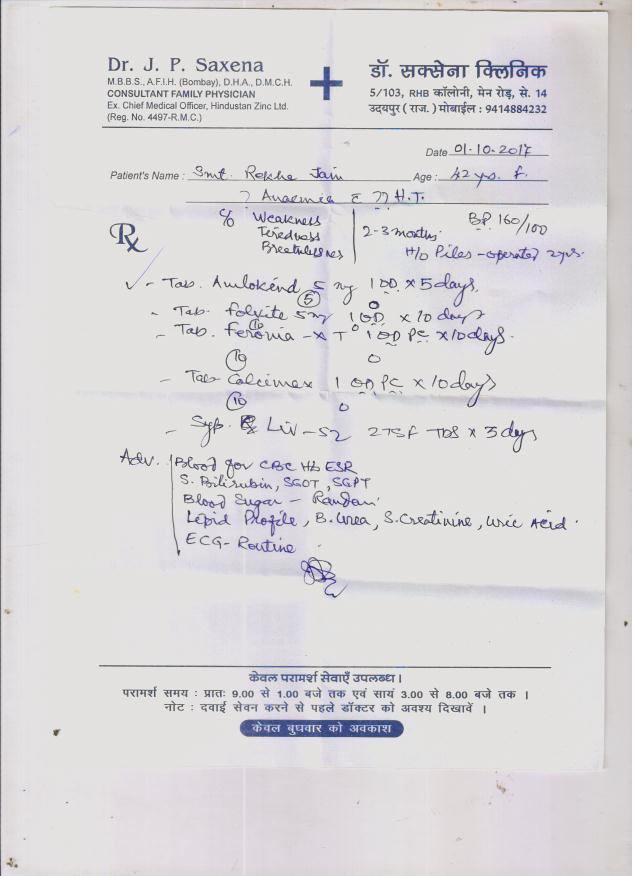 Dr. J. P. Saxena
M.B.B.S., A.F.I.H. (Bombay), D.H.A., D.M.C.H.
CONSULTANT FAMILY PHYSICIAN
Ex. Chief Medical Officer, Hindustan Zinc Ltd.
(Reg. No. 4497-R.M.C.)
डॉ. सक्सेना क्लिनिक
5/103, RHB कॉलोनी, मेन रोड़, से. 14
उदयपुर ( राज. ) मोबाईल : 9414884232
Date 01-10-2017
Patient's Name : Smt. Rekha Jain Age : 42 yrs. F.
? Anaemia c ?? H.T.
c/o Weakness
Tiredness
Breathlessness
2-3 months.
BP 160/100
H/O Piles - operated 2 yrs.
Rx
✓ - Tab. Amlokind 5 mg 1 OD x 5 days.
5
- Tab. Folvite 5mg 1 OD x 10 days
10
- Tab. Feronia - XT 1 OD PC x 10 days.
10
- Tab Calcimax 1 OD PC x 10 days
10
- Syp. Liv-52 2TSF TDS x 3 days
Adv. Blood for CBC Hb ESR
S. Bilirubin, SGOT, SGPT
Blood Sugar - Random
Lipid Profile, B. Urea, S. Creatinine, Uric Acid.
ECG - Routine
केवल परामर्श सेवाएँ उपलब्ध ।
परामर्श समय : प्रातः 9.00 से 1.00 बजे तक एवं सायं 3.00 से 8.00 बजे तक ।
नोट : दवाई सेवन करने से पहले डॉक्टर को अवश्य दिखावें ।
केवल बुधवार को अवकाश